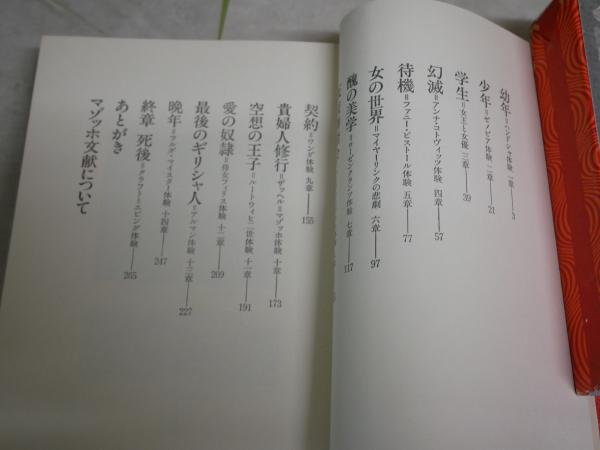 幼年=ハンドシャ体験 一章——3
少年=ゼノビア体験 二章——21
学生=女王と女優 三章——39
幻滅=アンナ・コトヴィッツ体験 四章——57
待機=ファニー・ピストール体験 五章——77
女の世界=マイヤーリンクの悲劇 六章——97
醜の美学= 体験 七章——117
契約=ワンダ体験 九章——155
貴婦人修行=ザッヘル=マゾッホ体験 十章——173
空想の王子=ルートウィヒ二世体験 十一章——191
愛の奴隷=侍女フィリス体験 十二章——209
最後のギリシャ人=アルマン体験 十三章——227
晩年=フルダ・マイスター体験 十四章——247
終章 死後=クラフト=エビング体験——265
あとがき
マゾッホ文献について